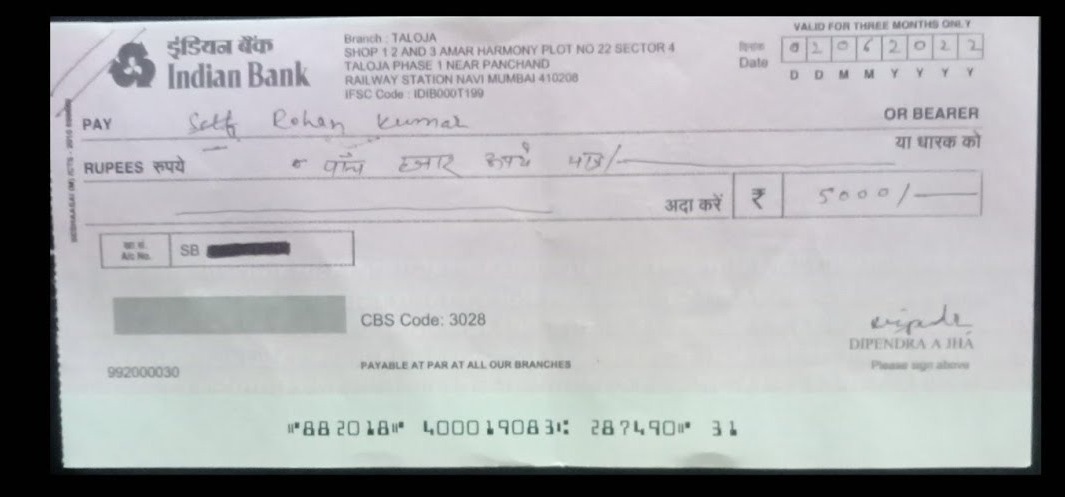 VALID FOR THREE MONTHS ONLY
इंडियन बैंक
Indian Bank
Branch : TALOJA
SHOP 1 2 AND 3 AMAR HARMONY PLOT NO 22 SECTOR 4
TALOJA PHASE 1 NEAR PANCHAND
RAILWAY STATION NAVI MUMBAI 410208
IFSC Code : IDIB000T199
दिनांक
Date
0 2 0 6 2 0 2 2
D D M M Y Y Y Y
PAY Self Rohan Kumar OR BEARER
या धारक को
RUPEES रुपये पाँच हजार रूपये मात्र/-
अदा करें ₹ 5000/-
खा सं.
A/c No. SB
CBS Code: 3028
DIPENDRA A JHA
Please sign above
PAYABLE AT PAR AT ALL OUR BRANCHES
992000030
⑈882018⑈ 400019083⑆ 287490⑈ 31